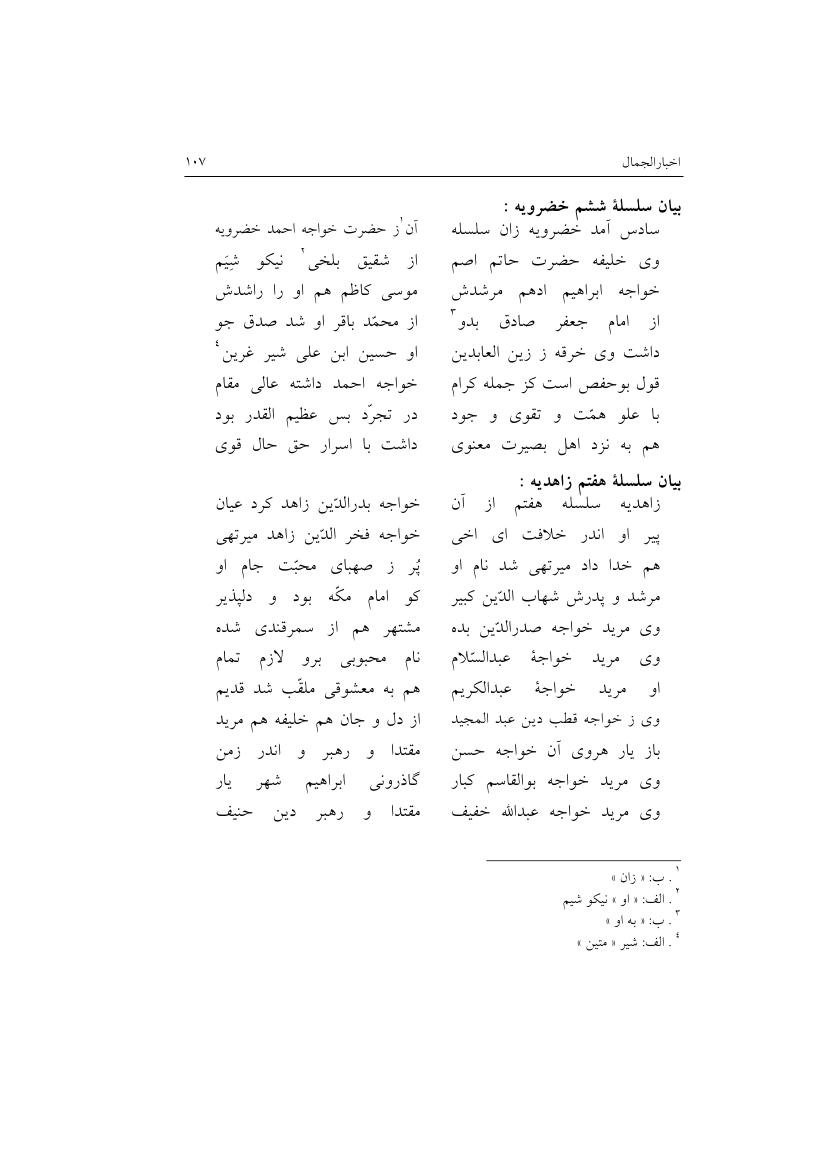 اخبارالجمال ۱۰۷
بیان سلسلۀ ششم خضرویه :
سادس آمد خضرویه زان سلسله آن۱ ز حضرت خواجه احمد خضرویه
وی خلیفه حضرت حاتم اصم از شقیق بلخی۲ نیکو شِیَم
خواجه ابراهیم ادهم مرشدش موسی کاظم هم او را راشدش
از امام جعفر صادق بدو۳ از محمّد باقر او شد صدق جو
داشت وی خرقه ز زین العابدین او حسین ابن علی شیر غرین٤
قول بوحفص است کز جمله کرام خواجه احمد داشته عالی مقام
با علو همّت و تقوی و جود در تجرّد بس عظیم القدر بود
هم به نزد اهل بصیرت معنوی داشت با اسرار حق حال قوی
بیان سلسلۀ هفتم زاهدیه :
زاهدیه سلسله هفتم از آن خواجه بدرالدّین زاهد کرد عیان
پیر او اندر خلافت ای اخی خواجه فخر الدّین زاهد میرتهی
هم خدا داد میرتهی شد نام او پُر ز صهبای محبّت جام او
مرشد و پدرش شهاب الدّین کبیر کو امام مکّه بود و دلپذیر
وی مرید خواجه صدرالدّین بده مشتهر هم از سمرقندی شده
وی مرید خواجۀ عبدالسّلام نام محبوبی برو لازم تمام
او مرید خواجۀ عبدالکریم هم به معشوقی ملقّب شد قدیم
وی ز خواجه قطب دین عبد المجید از دل و جان هم خلیفه هم مرید
باز یار هروی آن خواجه حسن مقتدا و رهبر و اندر زمن
وی مرید خواجه بوالقاسم کبار گاذرونی ابراهیم شهر یار
وی مرید خواجه عبدالله خفیف مقتدا و رهبر دین حنیف
۱ . ب: « زان »
۲ . الف: « او » نیکو شیم
۳ . ب: « به او »
٤ . الف: شیر « متین »